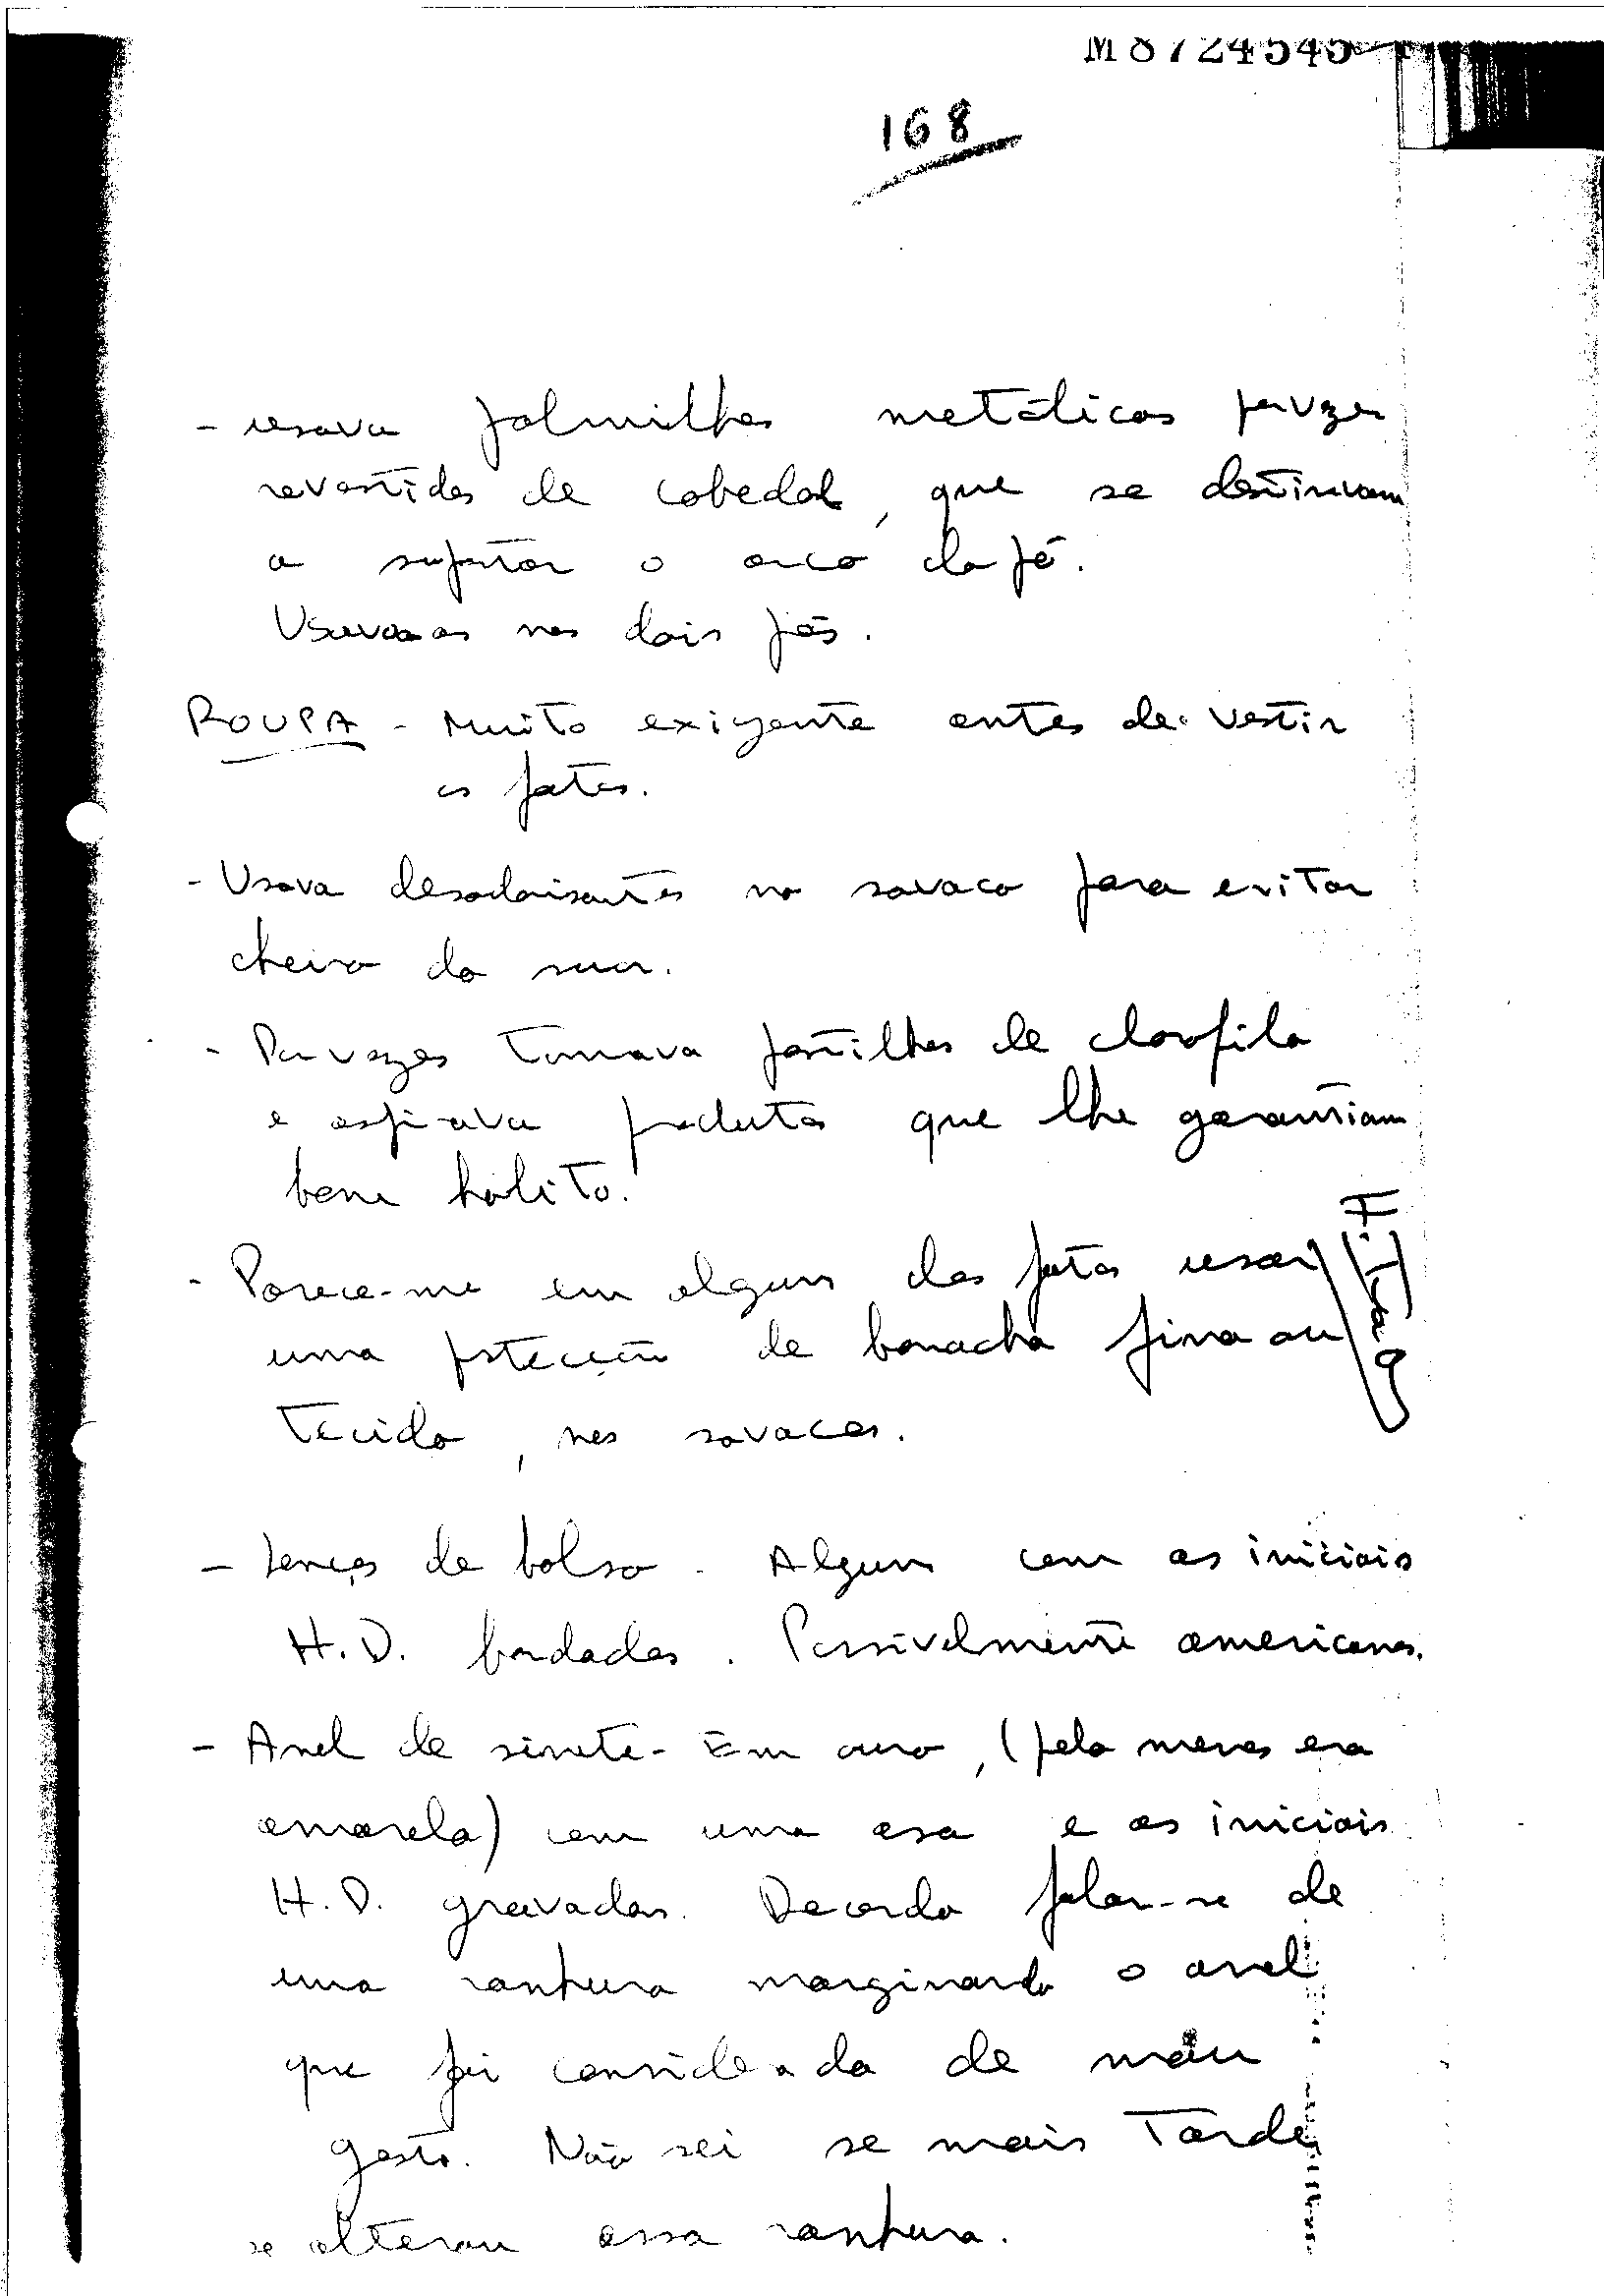 M8724545
168
- usava palmilhas metálicas por vezes
revestidas de cabedal, que se destinavam
a suportar o arco do pé.
Usava as nos dois pés.
ROUPA - Muito exigente antes de vestir
os fatos.
- Usava desodorisantes no sovaco para evitar
cheiro do suor.
- Por vezes tomava pastilhas de clorofila
e aspirava produtos que lhe garantiam
bom hálito.
- Parece-me em alguns dos fatos usar
uma protecção de borracha fina ou
tecido, nos sovacos.
- Lenços de bolso. Alguns com as iniciais
H.D. bordadas. Possivelmente americanos.
- Anel de sinete - Em ouro, (pelo menos era
amarelo) com uma asa e as iniciais
H.D. gravadas. Recordo falar-se de
uma ranhura marginando o anel
que foi considerada de mau
gosto. Não sei se mais tarde
se alterou essa ranhura.